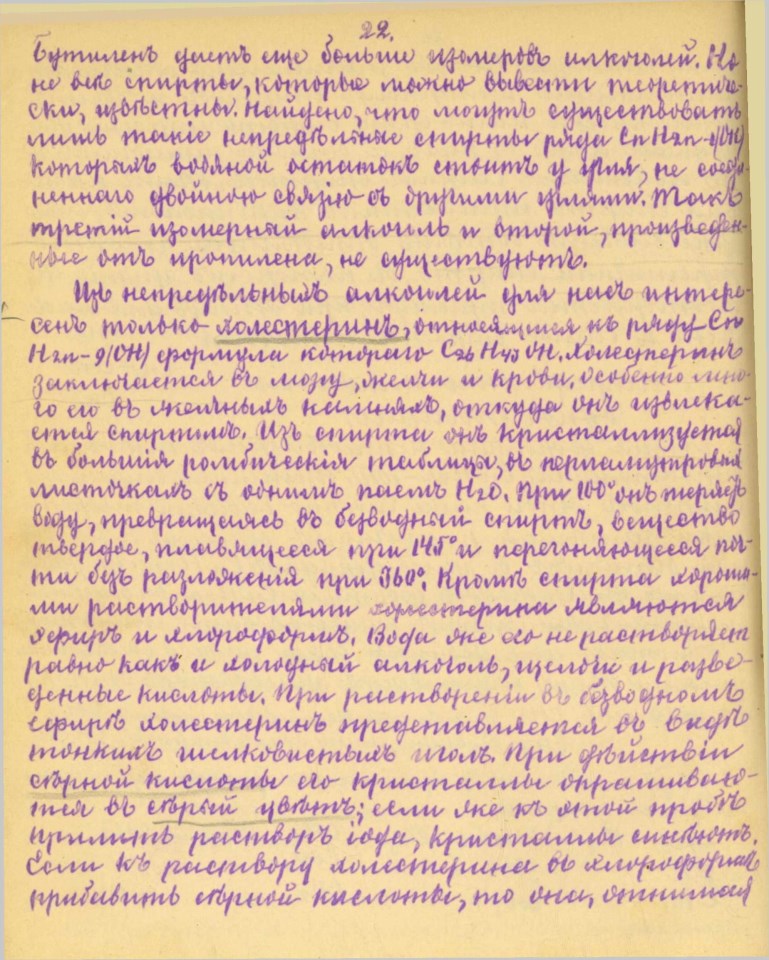 22.
Бутиленъ даетъ еще больше изомеровъ алкоголей. Но
не всѣ спирты, которые можно вывести теоретиче-
ски, извѣстны. Найдено, что могутъ существовать
лишь такіе непредѣльные спирты ряда CnH2n-1(OH)
которыхъ водяной остатокъ стоитъ у угля, не соеди-
неннаго двойною связію съ другими углями. Такъ
третій изомерный алкоголь и второй, произведен-
ные отъ пропилена, не существуютъ.
Изъ непредѣльныхъ алкоголей для насъ интере-
сенъ только холестеринъ, относящійся къ ряду Cn
H2n-9(OH) формула котораго C26H43OH. Холестеринъ
заключается въ мозгу, желчи и крови. Особенно мно-
го его въ желчныхъ камняхъ, откуда онъ извлека-
ется спиртомъ. Изъ спирта онъ кристаллизуется
въ большія ромбическія таблицы, въ перламутровыя
листочкахъ съ однимъ паемъ H2O. При 100° онъ теряетъ
воду, превращаясь въ безводный спиртъ, вещество
твердое, плавящееся при 145° и перегоняющееся поч-
ти безъ разложенія при 360°. Кромѣ спирта хороши-
ми растворителями холестерина являются
эфиръ и хлороформъ. Вода же его не растворяетъ
равно какъ и холодный алкоголь, щелочи и разве-
денные кислоты. При раствореніи въ безводномъ
эфирѣ холестеринъ представляется въ видѣ
тонкихъ шелковистыхъ иголъ. При дѣйствіи
сѣрной кислоты его кристаллы окрашиваю-
тся въ сѣрый цвѣтъ; если же къ этой пробѣ
прилить растворъ іода, кристаллы синѣютъ.
Если къ раствору холестерина въ хлороформѣ
прибавить сѣрной кислоты, то она, отнимая